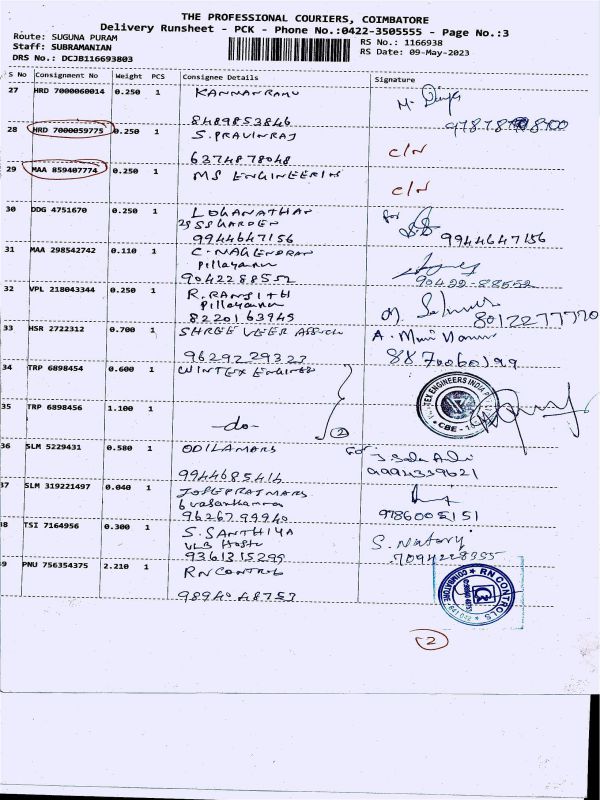 THE PROFESSIONAL COURIERS, COIMBATORE
Delivery Runsheet - PCK - Phone No.:0422-3505555 - Page No.:3
Route: SUGUNA PURAM
RS No.: 1166938
Staff: SUBRAMANIAN
RS Date: 09-May-2023
DRS No.: DCJB116693803
S No Consignment No Weight PCS Consignee Details Signature
27 HRD 7000060014 0.250 1 KANNANRAMU
8489853846
28 HRD 7000059775 0.250 1 S. PRAVINRAJ
6374878048 C/N
29 MAA 859407774 0.250 1 MS ENGINEERIN
C/N
30 DDG 4751670 0.250 1 LOGANATHAN for
25 SS GARDEN
9944647156 9944647156
31 MAA 298542742 0.110 1 C. NAGENDRAN
Pillayanur
9042288552 90422-88552
32 VPL 218043344 0.250 1 R. RANJITH
Pillayanur
8220163945 8012277770
33 HSR 2722312 0.700 1 SHREE VEER
9629229323 8870060199
34 TRP 6898454 0.600 1 WINTEX ENGINEE
35 TRP 6898456 1.100 1
-do- 2
36 SLM 5229431 0.580 1 ODILAMARS For
9944685414 9994339621
37 SLM 319221497 0.040 1
9626799940 9786005151
38 TSI 7164956 0.300 1 S. SANTHIYA
VLB Hostel
9361315299
39 PNU 756354375 2.210 1 RN CONTROL
9894048753
RN CONTROLS
COIMBATORE
2